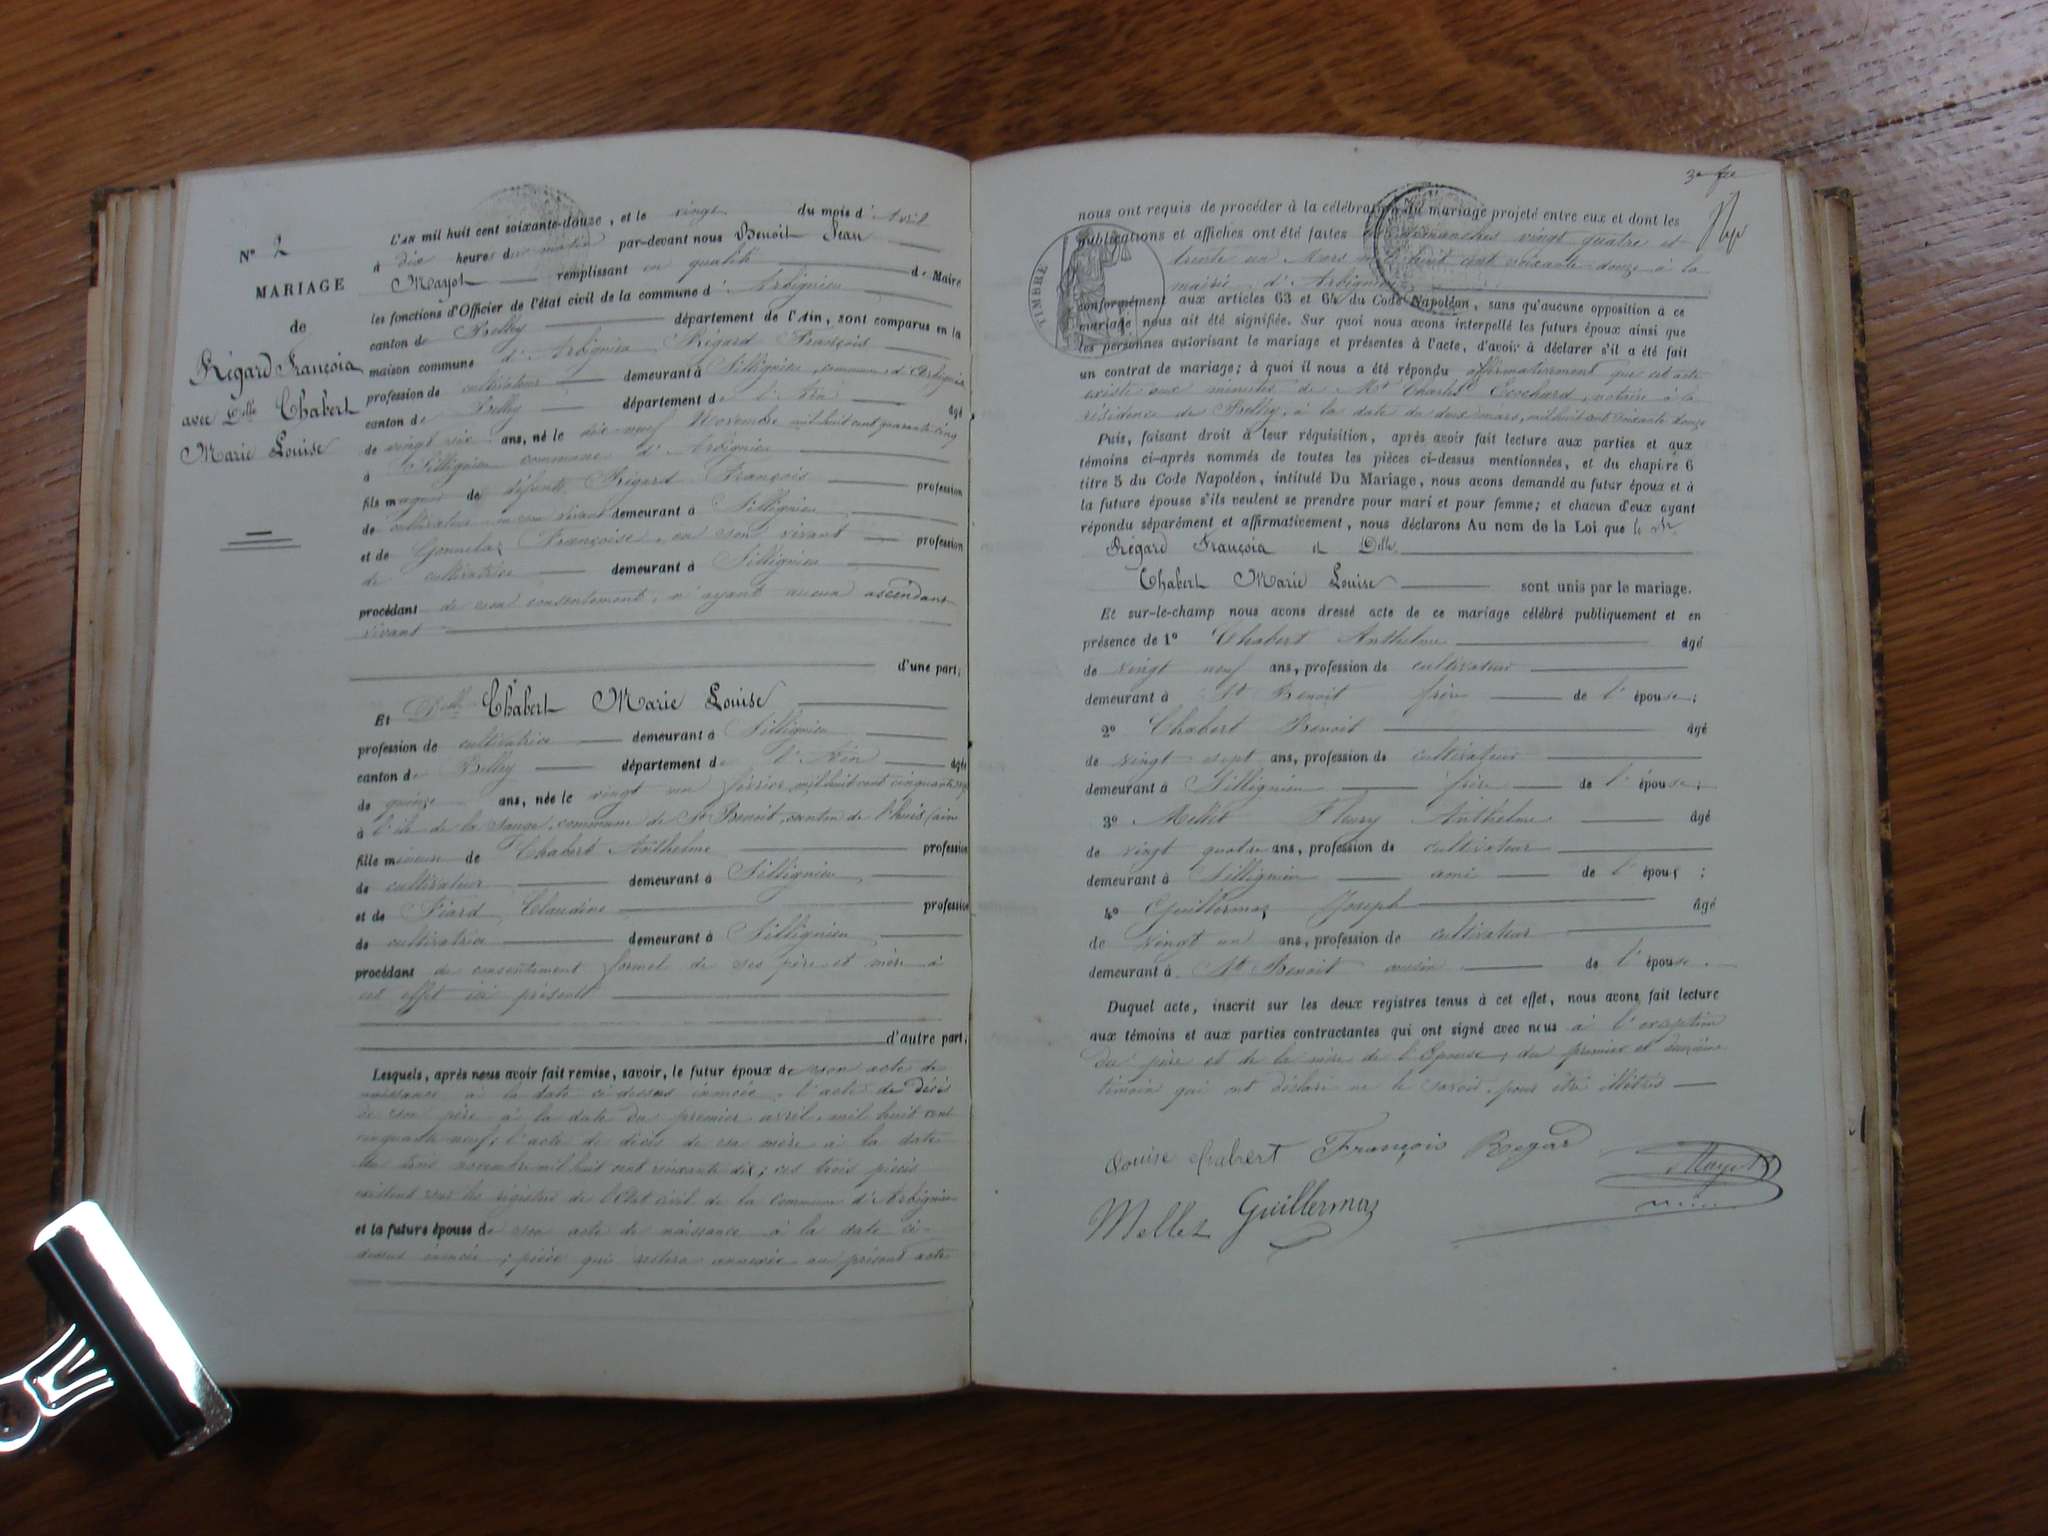 N° 2
MARIAGE
de
Régard François
avec Dlle Chabert
Marie Louise
L'AN mil huit cent soixante-douze, et le vingt du mois d'Avril
à dix heures du matin par-devant nous Benoit Jean
Mayot remplissant en qualité de Maire
les fonctions d'Officier de l'état civil de la commune d'Arbignieu
canton de Belley département de l'Ain, sont comparus en la
maison commune d'Arbignieu Régard François
profession de cultivateur demeurant à Sillignieu, commune d'Arbignieu
canton de Belley département de l'Ain âgé
de vingt six ans, né le dix-neuf Novembre mil huit cent quarante cinq
à Sillignieu commune d'Arbignieu
fils majeur de défunts Régard François profession
de cultivateur en son vivant demeurant à Sillignieu
et de Gonnelaz Françoise, en son vivant profession
de cultivatrice demeurant à Sillignieu
procédant de son consentement, n'ayant aucun ascendant
vivant
d'une part;
Et Dlle Chabert Marie Louise
profession de cultivatrice demeurant à Sillignieu
canton de Belley département de l'Ain âgée
de quinze ans, née le vingt un février mil huit cent cinquante sept
à l'île de la Sauge, commune de St Benoit, canton de l'huis (ain
fille mineure de Chabert Anthelme profession
de cultivateur demeurant à Sillignieu
et de Fiard Claudine profession
de cultivatrice demeurant à Sillignieu
procédant de consentement formel de ses père et mère à
cet effet ici présents
d'autre part;
Lesquels, après nous avoir fait remise, savoir, le futur époux de son acte de
naissance à la date ci-dessus énoncée, l'acte de décès
de son père à la date du premier avril, mil huit cent
cinquante neuf; l'acte de décès de sa mère à la date
du trois novembre mil huit cent soixante dix; ces trois pièces
existent sur les registres de l'Etat civil de la commune d'Arbignieu
et la future épouse de son acte de naissance à la date ci-
dessus énoncée; pièce qui restera annexée au présent acte
3e fce
nous ont requis de procéder à la célébration du mariage projeté entre eux et dont les
publications et affiches ont été faites les dimanches vingt quatre et
trente un Mars mil huit cent soixante-douze à la
mairie d'Arbignieu
TIMBRE
conformément aux articles 63 et 64 du Code Napoléon, sans qu'aucune opposition à ce
mariage nous ait été signifiée. Sur quoi nous avons interpellé les futurs époux ainsi que
les personnes autorisant le mariage et présentes à l'acte, d'avoir à déclarer s'il a été fait
un contrat de mariage; à quoi il nous a été répondu affirmativement que cet acte
existe aux minutes de Me Charles notaire à la
résidence de Belley, à la date du deux mars, mil huit cent soixante douze
Puis, faisant droit à leur réquisition, après avoir fait lecture aux parties et aux
témoins ci-après nommés de toutes les pièces ci-dessus mentionnées, et du chapitre 6
titre 5 du Code Napoléon, intitulé Du Mariage, nous avons demandé au futur époux et à
la future épouse s'ils veulent se prendre pour mari et pour femme; et chacun d'eux ayant
répondu séparément et affirmativement, nous déclarons Au nom de la Loi que le Sr
Régard François et Dlle
Chabert Marie Louise sont unis par le mariage.
Et sur-le-champ nous avons dressé acte de ce mariage célébré publiquement et en
présence de 1° Chabert Anthelme âgé
de vingt neuf ans, profession de cultivateur
demeurant à St Benoit frère de l'épouse;
2° Chabert Benoit âgé
de vingt sept ans, profession de cultivateur
demeurant à Sillignieu frère de l'épouse;
3° Mellet Fleury Anthelme âgé
de vingt quatre ans, profession de cultivateur
demeurant à Sillignieu ami de l'époux;
4° Guillermoz Joseph âgé
de vingt un ans, profession de cultivateur
demeurant à St Benoit cousin de l'épouse.
Duquel acte, inscrit sur les deux registres tenus à cet effet, nous avons fait lecture
aux témoins et aux parties contractantes qui ont signé avec nous à l'exception
du père et de la mère de l'Epouse, du premier et deuxième
témoin qui ont déclaré ne le savoir, pour être illétrés
Louise chabert François Regar Mayot
Mellet Guillermoz